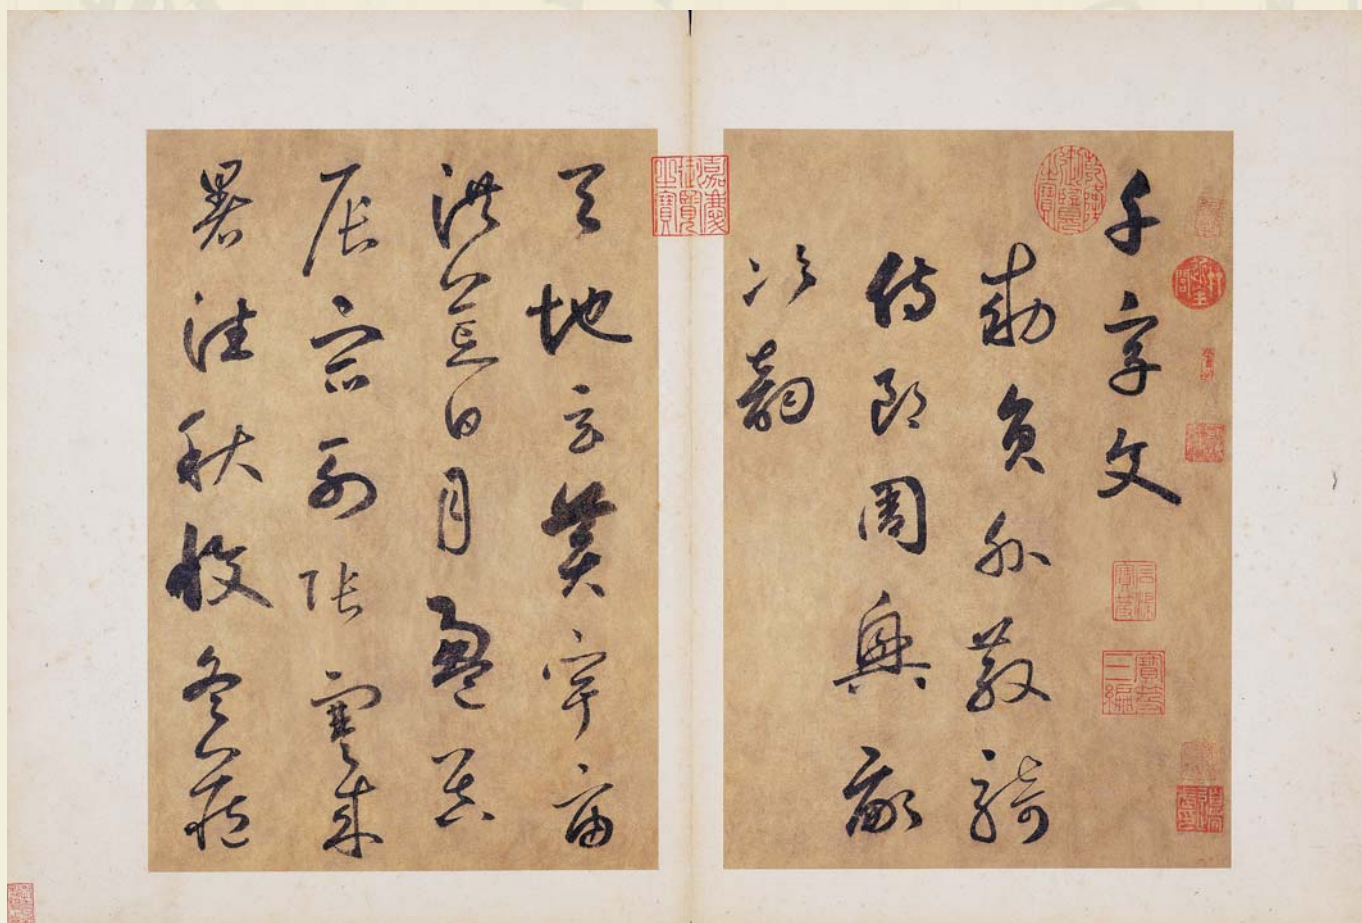 千字文
勅員外散騎
侍郎周興嗣
次韻
天地玄黃宇宙
洪荒日月盈昃
辰宿列張寒来
暑往秋收冬藏
乾隆御覽之寶
嘉慶御覽之寶
寶笈三編